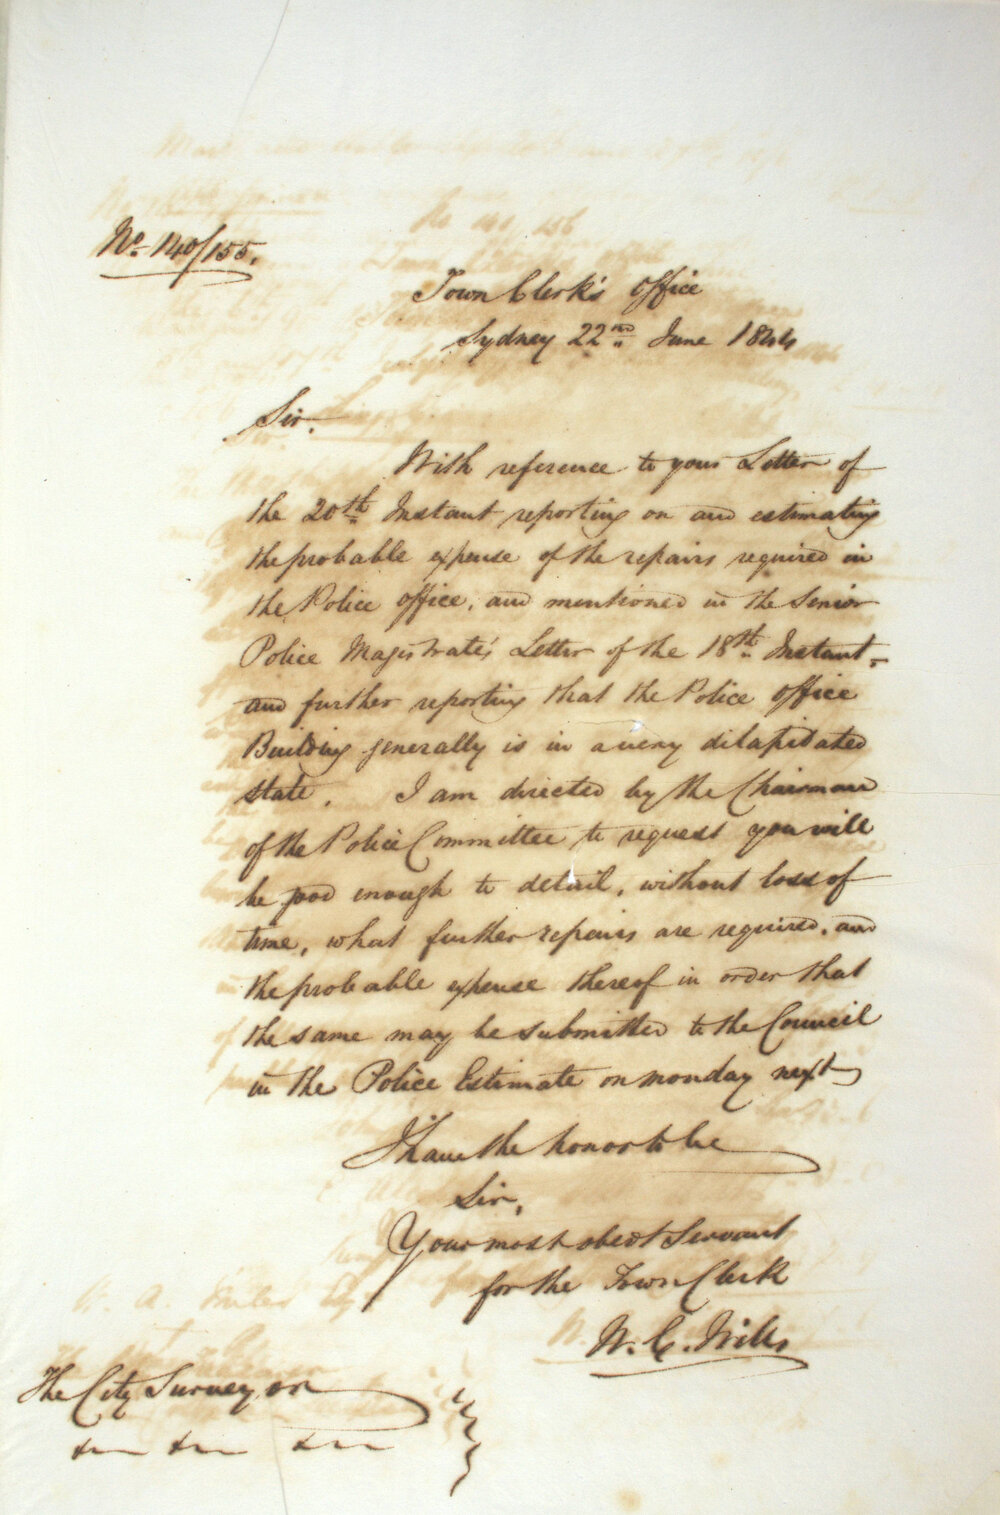 No. 140/155.
Town Clerk's Office
Sydney 22nd June 1844
Sir.
With reference to your Letter of
the 20th Instant reporting on and estimating
the probable expense of the repairs required in
the Police office, and mentioned in the Senior
Police Magistrate's Letter of the 18th Instant -
and further reporting that the Police office
Building generally is in a very dilapidated
state. I am directed by the Chairman
of the Police Committee to request you will
be good enough to detail, without loss of
time, what further repairs are required, and
the probable expense thereof in order that
the same may be submitted to the Council
in the Police Estimate on monday next
I have the honor to be
Sir,
Your most obedt Servant
for the Town Clerk
W. C. Wills
The City Surveyor